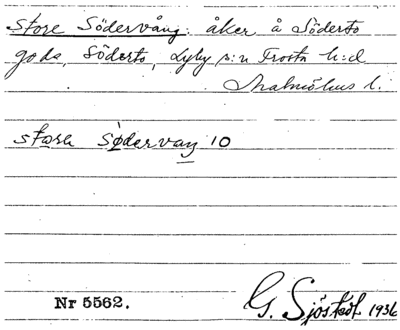 Store Södervång: åker å Söderto
gods, Söderto, Lyby s:n Frosta h:d
Malmöhus l.
stora sødervaŋ 10
Nr 5562.
G. Sjöstedt 1936